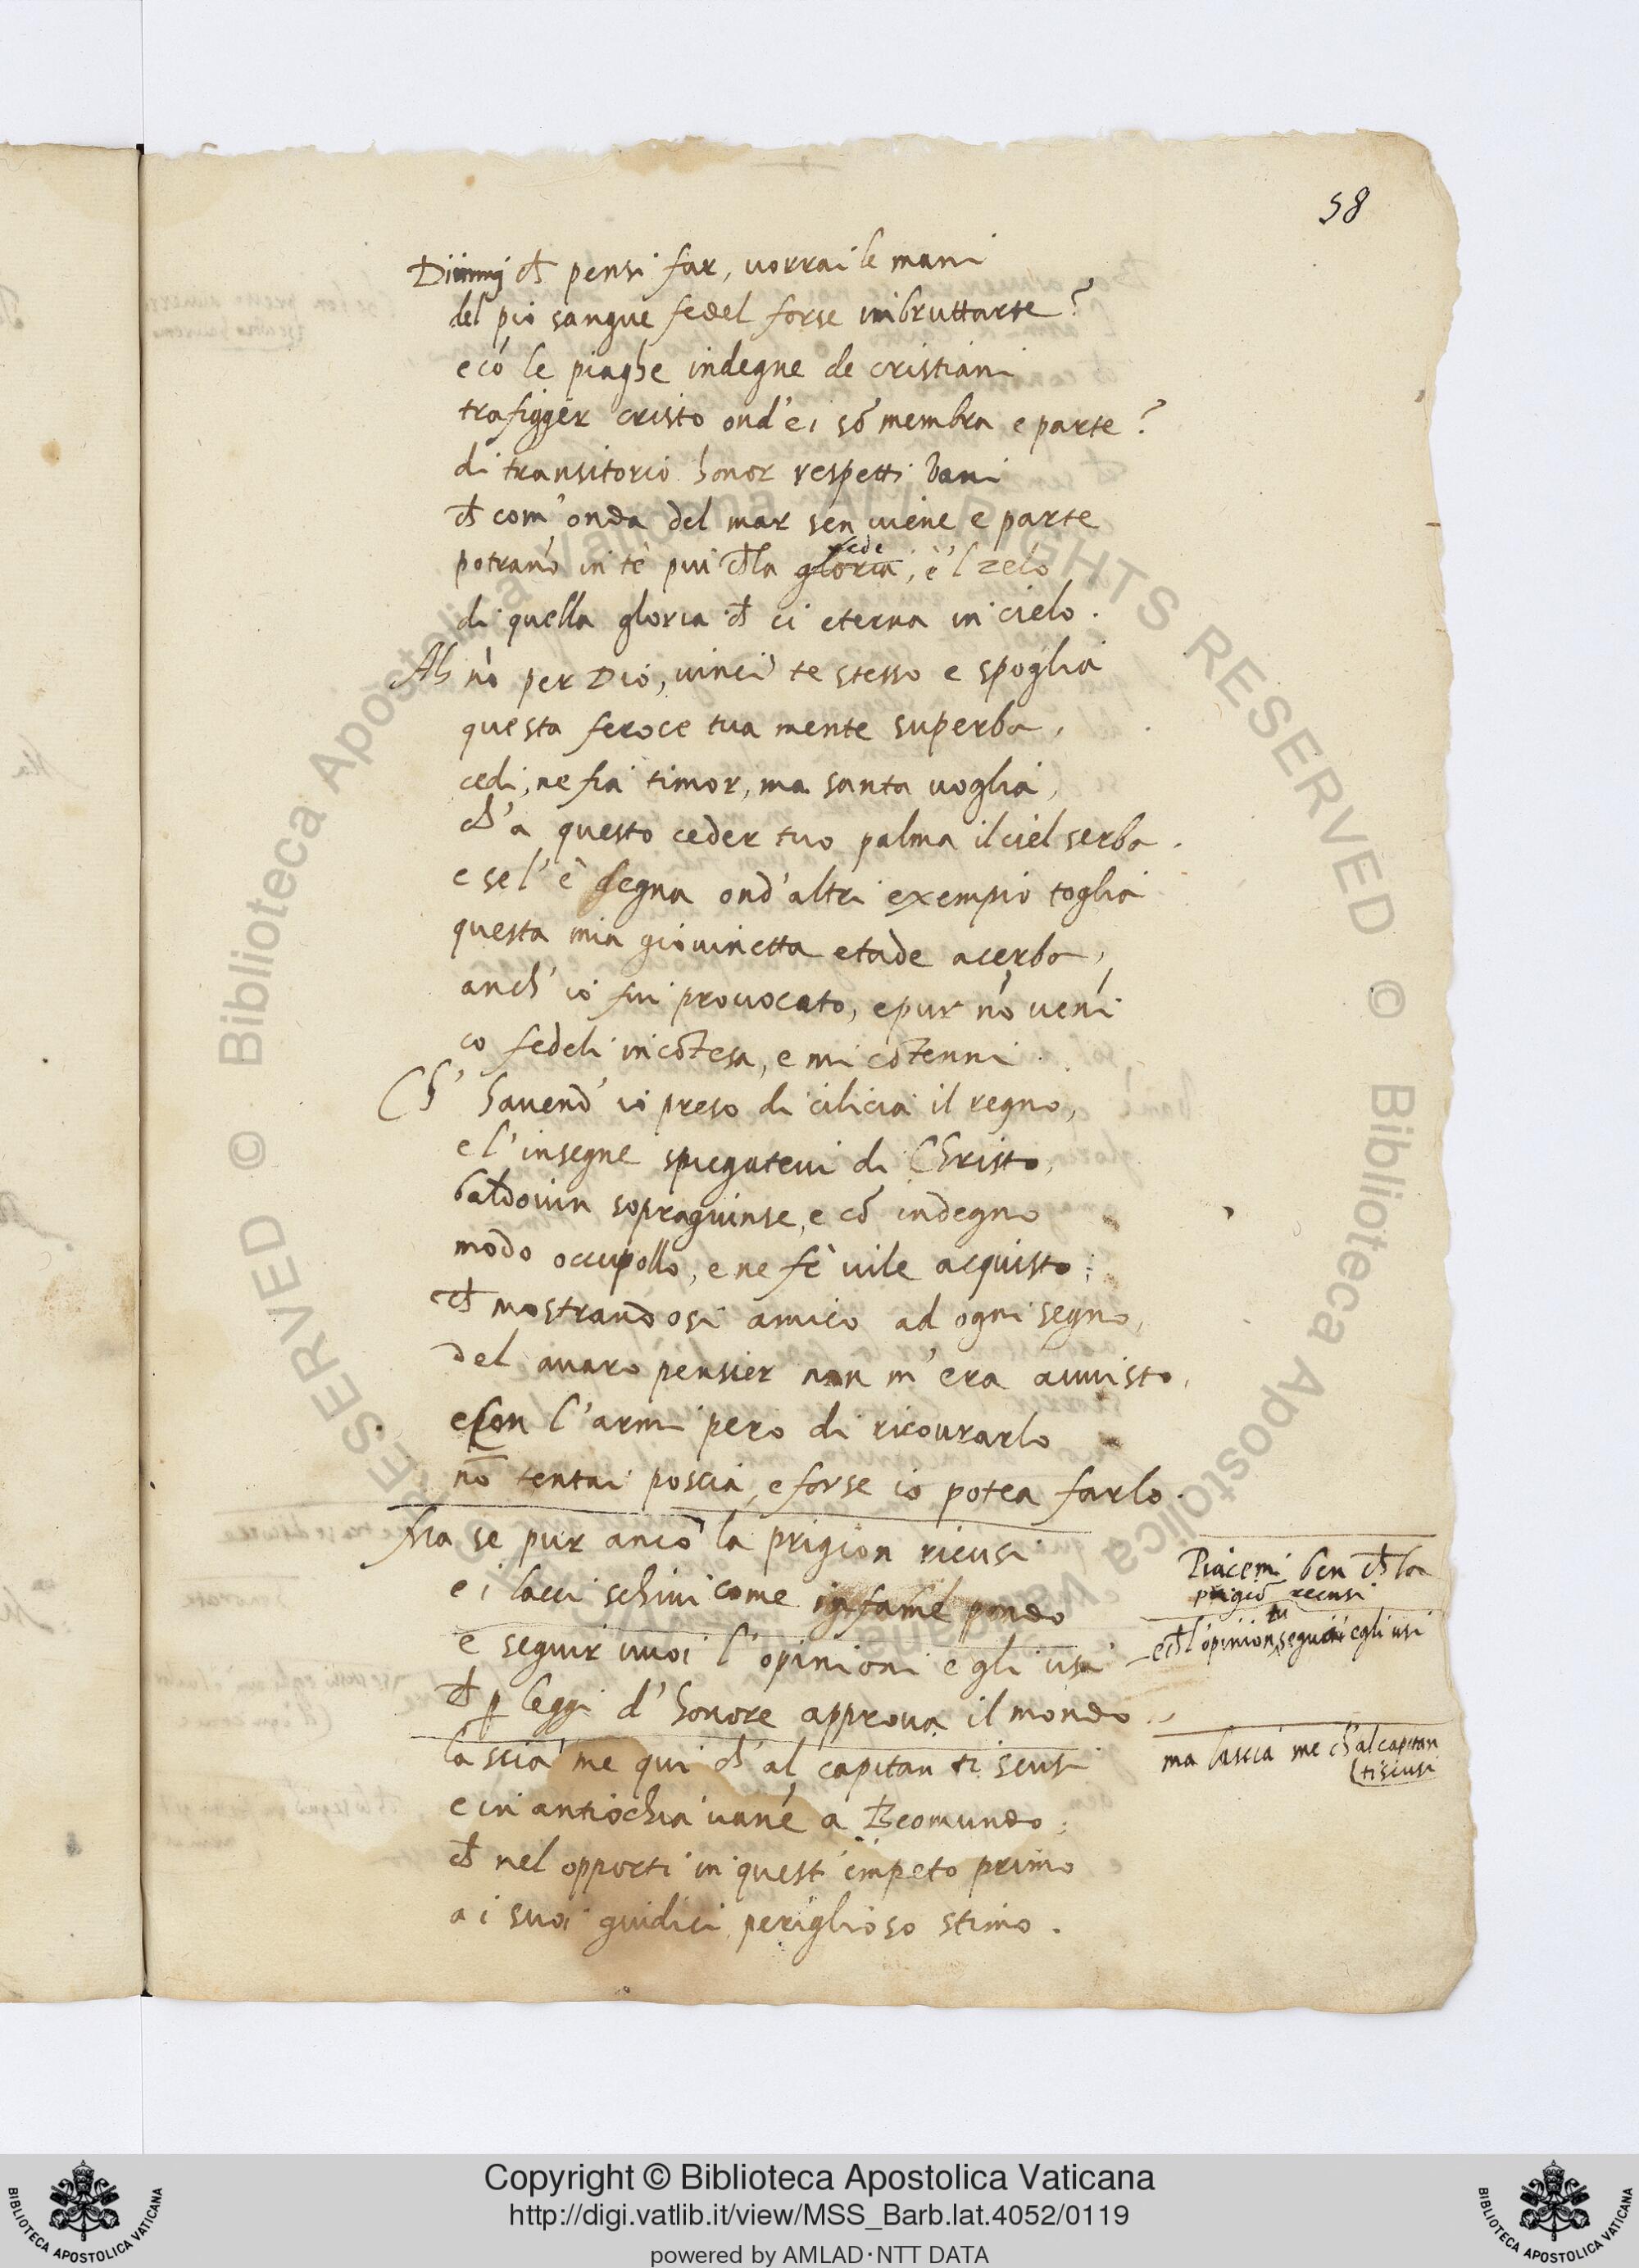 58
Dimmi ch̃ pensi far, vorrai le mani
del pio sangue fedel forse imbruttarte?
e cō le piaghe indegne de cristiani
trafigger cristo ond'ei sō membra e parte?
di transitorio honor respetti vani
ch̃ com' onda del mar sen viene e parte
potranō in te piu ch̃ la gloria fede, e 'l zelo
di quella gloria ch̃ ci eterna in cielo.
Ah nō per Dio, vinci te stesso e spoglia
questa feroce tua mente superba,
cedi, ne fia timor, ma santa voglia,
ch'a questo ceder tuo palma il ciel serba.
e se l'è degna ond'altri exempio toglia
questa mia giovinetta etade acerba,
anch' io fui provocato, e pur nō veni
co fedeli in cōtesa, e mi cōtenni.
Ch' havend' io preso di cilicia il regno,
e l'insegne spiegatevi di CHristo,
baldovin sopragiunse, e cō indegno
modo occupollo, e ne fè vile acquisto;
ch̃ mostrandosi amico ad ogni segno,
del avaro pensier non m'era avvisto,
e con l'armi pero di ricovrarlo
nō tentai poscia, e forse io potea farlo.
Ma se pur anco la prigion ricusi
e i lacci schivi come infame pondo
e seguir vuoi l'opinioni e gli usi
ch̃ p leggi d'honore approva il mondo
lascia me qui ch'al capitan ti scusi
e in antiochia vane a Beomundo;
ch̃ nel opporti in quest' impeto primo
a i suoi giudici periglioso stimo.
Piacemi ben ch̃ la
prigiō recusi
e ch̃ l'opinion tu segui e gli usi
ma lascia me ch'al capitan
ti scusi
© Biblioteca Apostolica Vaticana ALL RIGHTS RESERVED © Biblioteca Apostolica Vaticana ALL RIGHTS RESERVED
BIBLIOTECA APOSTOLICA VATICANA
Copyright © Biblioteca Apostolica Vaticana
http://digi.vatlib.it/view/MSS_Barb.lat.4052/0119
powered by AMLAD·NTT DATA
BIBLIOTECA APOSTOLICA VATICANA